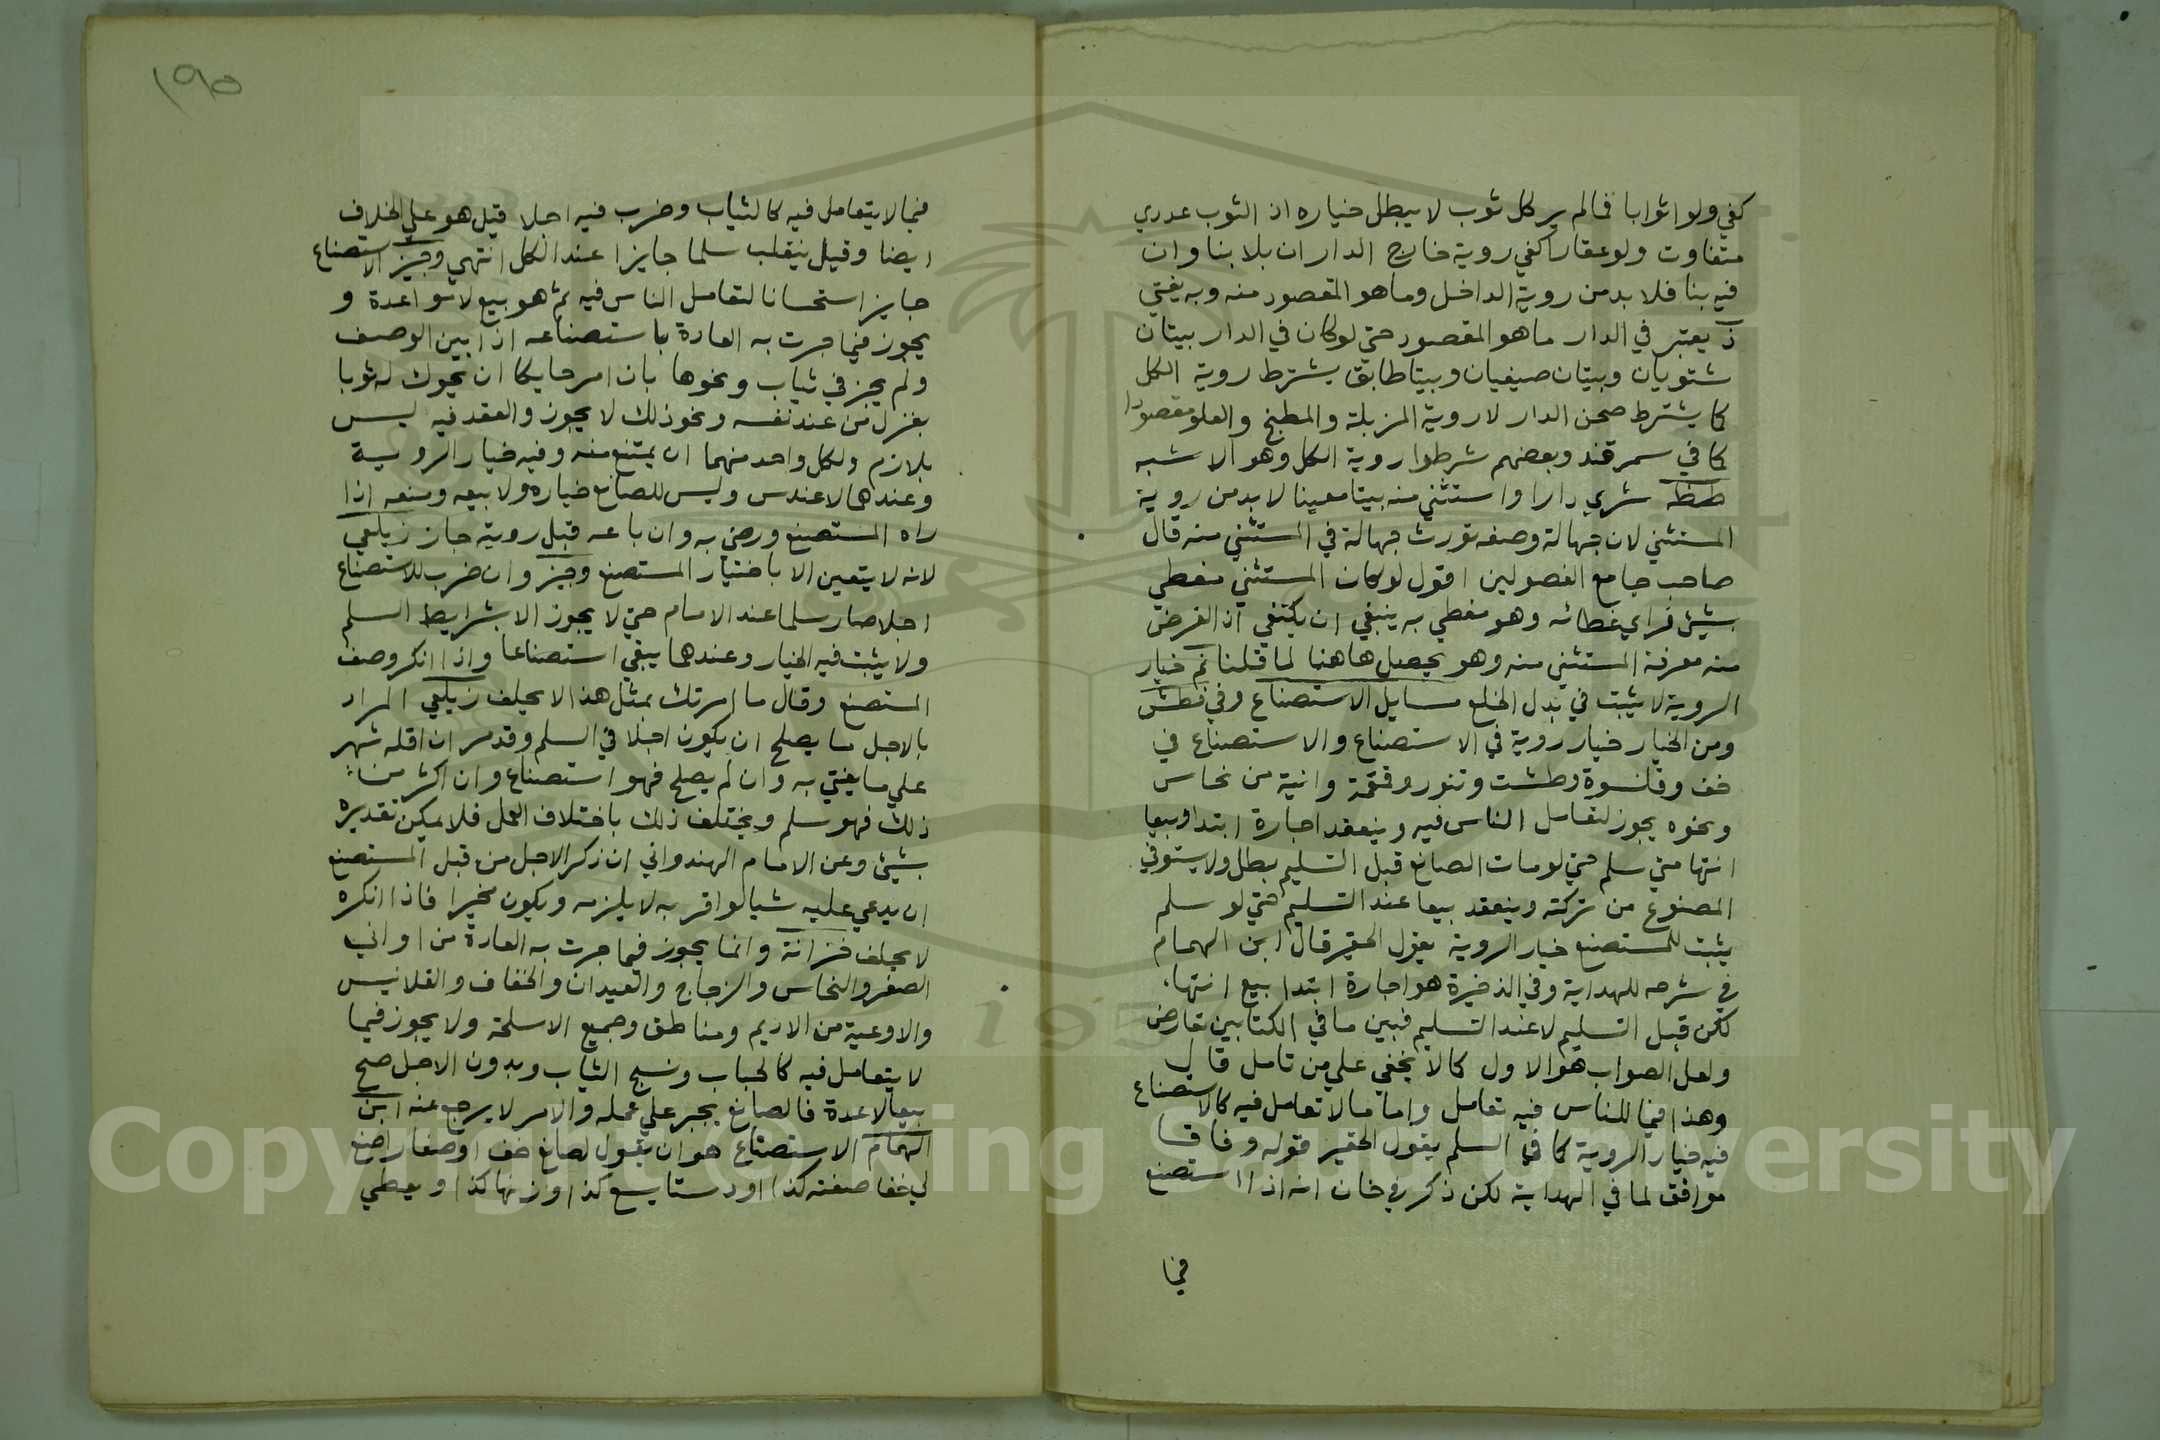 كفي ولو اثوابا فمالم ير كل ثوب لا يبطل خياره اذ الثوب عددي
متفاوت ولو عقارا كفي روية خارج الدار ان بلا بنا وان
فيه بنا فلا بد من روية الداخل وما هو المقصود منه وبه يفتي
يعتبر في الدار ما هو المقصود حتي لو كان في الدار بيتان
شتويان وبيتان صيفيان وبيتا طابق يشترط روية الكل
كما يشترط صحن الدار لا روية المزبلة والمطبخ والعلو مقصودا
كما في سمرقند وبعضهم شرطوا روية الكل وهو الاشبه
شري دارا واستثني منه بيتا معينا لا بد من روية
المستثني لان جهالة وصفه تورث جهالة في المستثني منه قال
صاحب جامع الفصولين اقول لو كان المستثني مغطي
بشيئ فراي غطائه وهو مغطي به ينبغي ان يكتفي اذ الغرض
منه معرفة المستثني منه وهو يحصل هاهنا لما قلنا ثم خيار
الروية لا يثبت في بدل الخلع مسايل الاستصناع وفي
ومن الخيار خيار روية في الاستصناع والاستصناع في
خف وقلنسوة وطشت وتنور وقمقمة وانية من نحاس
ونحوه يجوز لتعامل الناس فيه وينعقد اجارة ابتدا وبيعا
انتها متي سلم حتي لو مات الصانع قبل التسليم بطل ولا يستوفي
المصنوع من تركته وينعقد بيعا عند التسليم حتي لو سلم
يثبت للمستصنع خيار الروية يقول الحقير قال ابن الهمام
في شرحه للهداية وفي الذخيرة هو اجارة ابتدا بيع انتها،
لكن قبل التسليم لا عند التسليم فبين ما في الكتابين تعارض
ولعل الصواب هو الاول كما لا يخفي علي من تامل قال
وهذا فيما للناس فيه تعامل واما ما لا تعامل فيه كالاستصناع
فيه خيار الروية كما في السلم يقول الحقير قوله وفاقا
موافق لما في الهداية لكن ذكر في خان انه اذا استصنع
فيما
١٩٥
فيما لا يتعامل فيه كالثياب وضرب فيه اجلا قيل هو علي الخلاف
ايضا وقيل ينقلب سلما جايزا عند الكل انتهي وجيز الاستصناع
جايز استحسانا لتعامل الناس فيه ثم هو بيع لا مواعدة و
يجوز فيما جرت به العادة باستصناعه اذا بين الوصف
ولم يجز في ثياب ونحوها بان امر حايكا ان يحوك له ثوبا
بغزل من عند نفسه ونحو ذلك لا يجوز والعقد فيه ليس
بلازم ولكل واحد منهما ان يمتنع منه وفيه خيار الروية
وعندهما لا عندس وليس للصانع خياره ولا بيعه ومنعه اذا
راه المستصنع ورضي به وان باعه قبل روية جاز زيلعي
لانه لا يتعين الا باختيار المستصنع وجيز وان ضرب للاستصناع
اجلا صار سلما عند الامام حتي لا يجوز الا بشرايط السلم
ولا يثبت فيه الخيار وعندهما يبقي استصناعا واذا انكر وصف
المستصنع وقال ما امرتك بمثل هذا لا يحلف زيلعي المراد
بالاجل ما يصلح ان يكون اجلا في السلم وقد مر ان اقله شهر
علي ما يفتي به وان لم يصلح فهو استصناع وان اكثر من
ذلك فهو سلم ويختلف ذلك باختلاف العمل فلا يمكن تقديره
بشيئ وعن الامام الهندواني ان ذكر الاجل من قبل المستصنع
ان يدعي عليه شيا لو اقر به لا يلزمه ويكون مخيرا فاذا انكره
لا يحلف خزانة وانما يجوز فيما جرت به العادة من اواني
الصفر والنحاس والزجاج والعيدان والخفاف والقلانيس
والاوعية من الاديم ومناطق وجميع الاسلحة ولا يجوز فيما
لا يتعامل فيه كالجباب ونسج الثياب وبدون الاجل صح
بيعا لا عدة فالصانع يجبر علي عمله والامر لا يرجع عنه ابن
الهمام الاستصناع هو ان يقول لصانع خف او صفار اصنع
لي خفا صفته كذا او دستا يسع كذا وزنها كذا ويعطي
Copyright © King Saud University
195